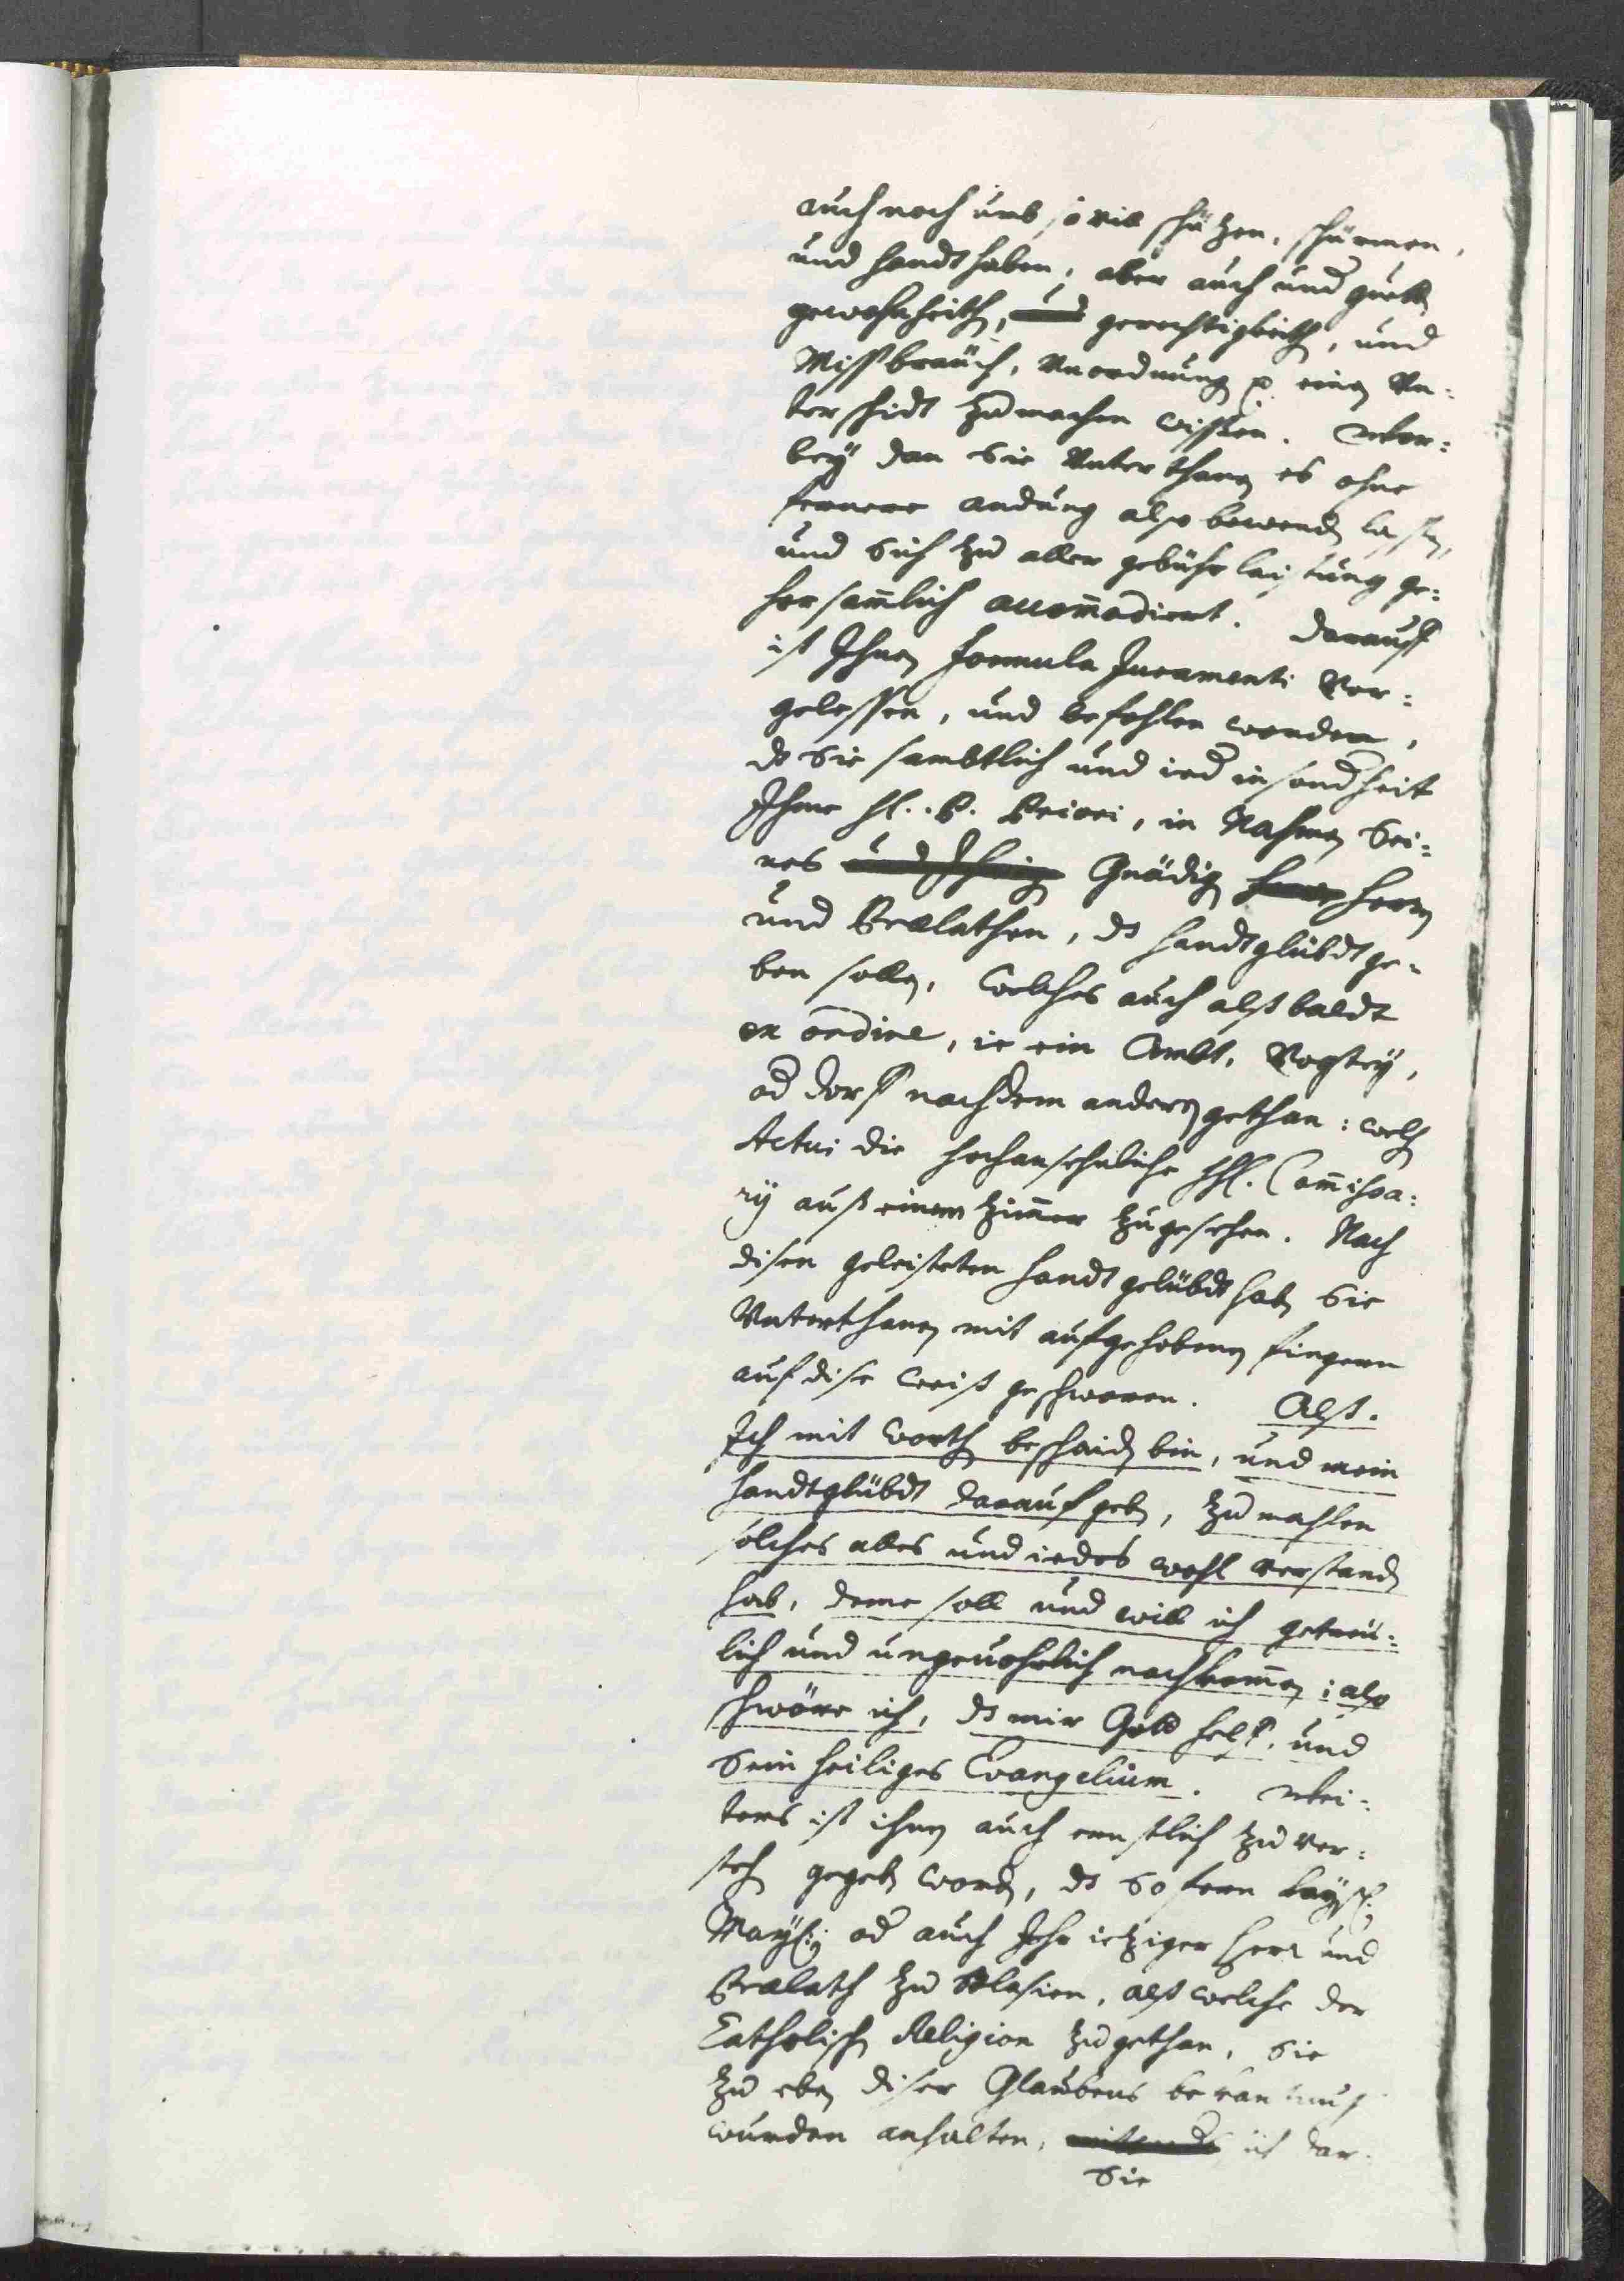 auch noch umb so vil schützen, schürmen,
und handthaben, aber auch und guetten
gewohnheith, und gerechtigkeith, und
Missbraüch, Vnordnung p. einen Vn=
terschidt zu machen wissen. Wor=
bey dan Sie Vnterthanen es ohne
fernere andung also bewenden lassen,
und Sich zu aller gebührlaistung ge=
horsamlich accommodiert. Darauff
ist Ihnen formula Juramenti Vor=
gelessen, und befohlen worden,
ds Sie sambtlich und ied insondheit
Ihme H. P. Priori, in Nahmen Sei=
nes Gnädigen Herrn
und Praelathen, ds handtglübdt ge=
ben sollen, welches auch alßbaldt
ex ordine, ie ein Ambt, Vogtey,
od dorff nach dem anderen gethan: welchen
Actui die hochansehnliche HH. Commissa=
rÿ auß einem Zimmer zugesehen. Nach
disen geleisteten handtgelübdt haben Sie
Vnterthanen mit aufgehobenen fingern
auf dise weiß geschworen. Alß.
Ich mit worthen beschaiden bin, und mein
handtglübdt darauf geben, zu mahlen
solches alles und iedes wohl verstanden
hab, deme soll und will ich getreu=
lich und ungevohrlich nachkommen: also
schwöre ich, ds mir Gott helff, und
Sein heiliges Evangelium. Wei=
ters ist ihnen auch ernstlich zu ver=
stehen gegeben worden, ds Sofern kaÿsl:
Maÿl: od auch Ihr ietziger Herr und
Praelath zu Blasien, alß welche der
Catholischen Religion zugethan, Sie
zu eben diser Glaubens bekantnus
wurden anhalten, Sie dar=